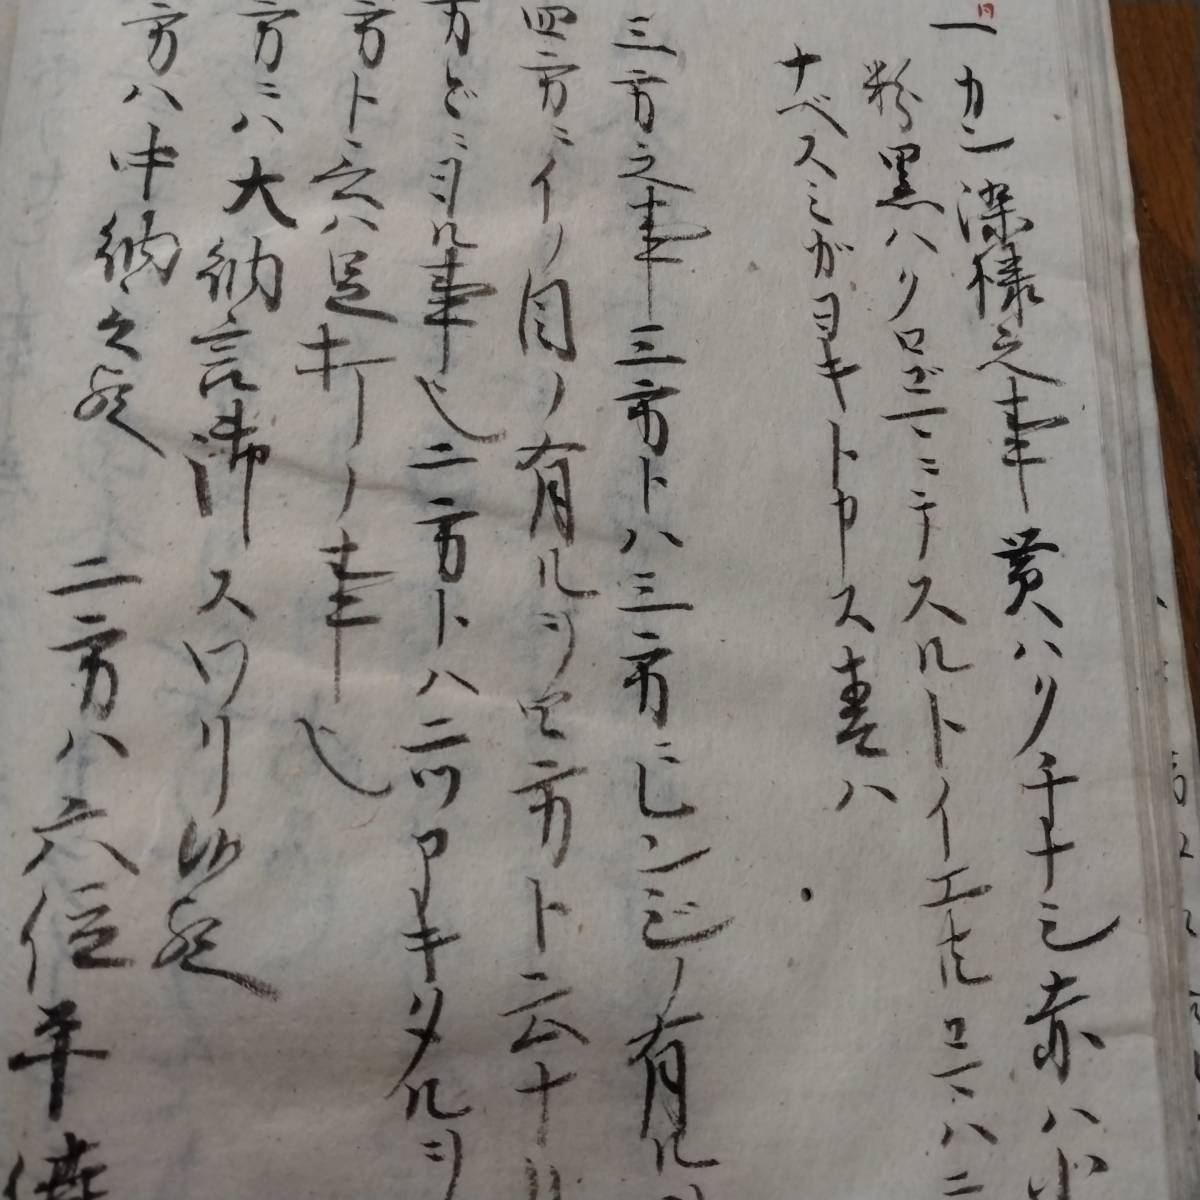 一カン染様之事 黄ハクチナシ 赤ハ小
粉 黒ハクロゴマニテスルトイエ共コマハニ
ナベスミガヨキト申ス 青ハ
三方之事 三方トハ三方ニヒンジノ有ル
四方ニイノ目ノ有ルヲ四方ト云ナリ
方どニヨル事也 二方トハ二ツアキタルヲ
方ト云ハ足キノ事也
方ニハ大納言御スワリ候也
方ハ中納之也 二方ハ六位